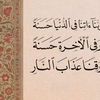 رَبَّنَا آتِنَا فِي الدُّنْيَا حَسَنَةً
وَفِي الْآخِرَةِ حَسَنَةً
وَقِنَا عَذَابَ النَّارِ